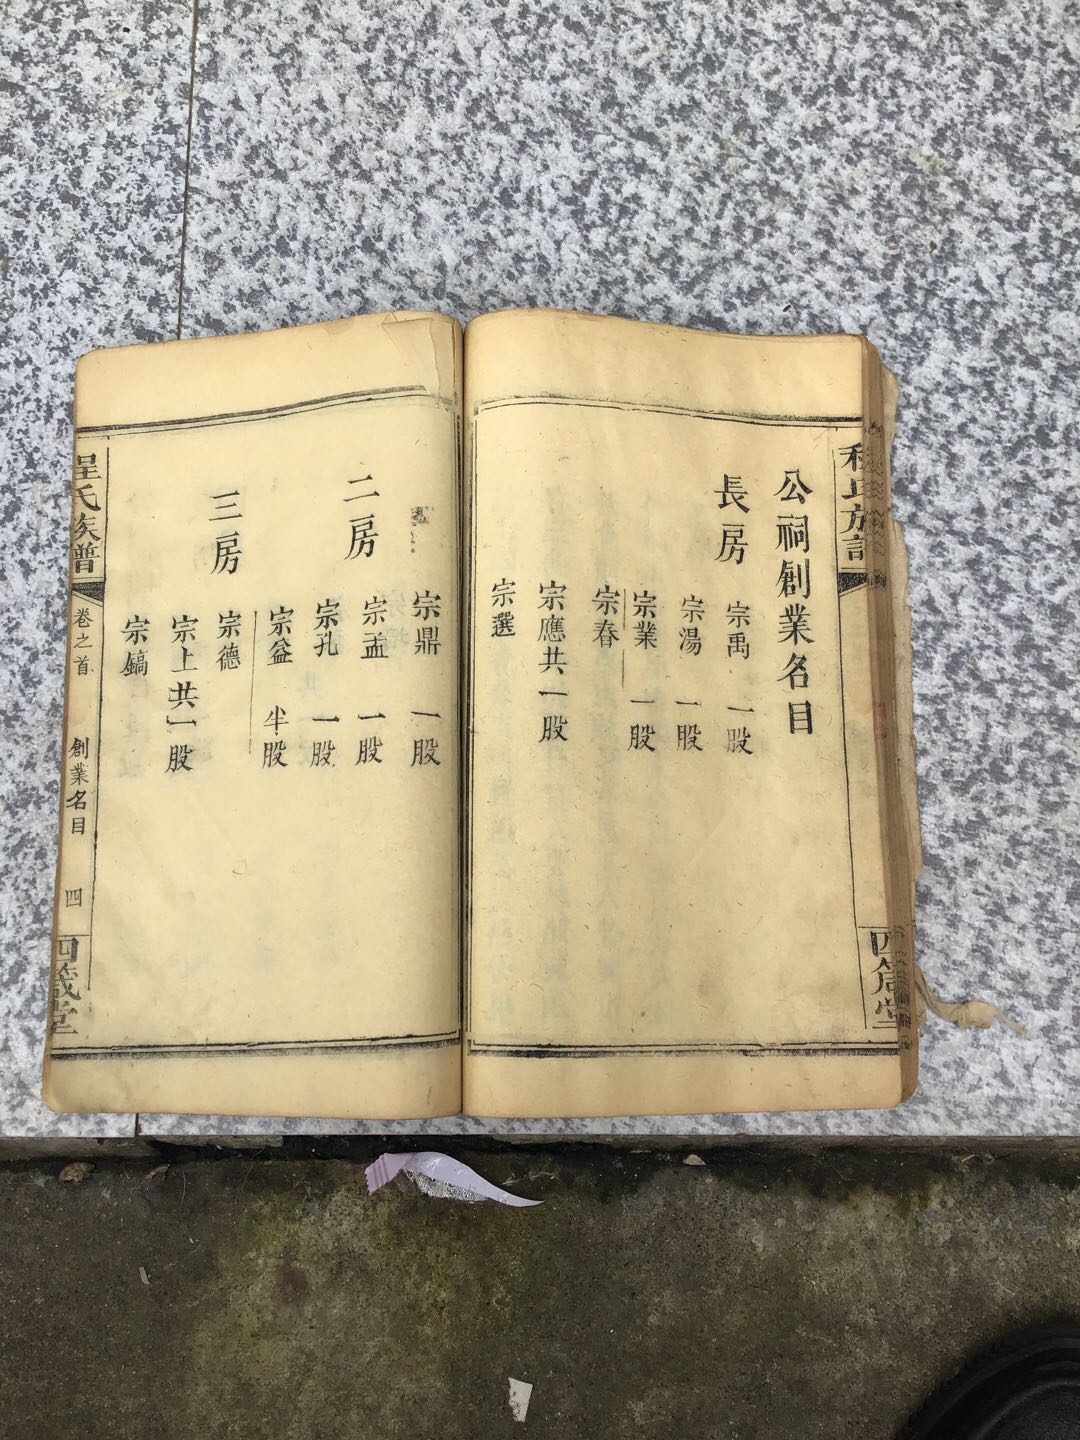 公祠創業名目
長房
宗禹 一股
宗湯 一股
宗業 一股
宗春
宗應共一股
宗選
宗鼎 一股
二房
宗孟 一股
宗孔 一股
宗益 半股
三房
宗德
宗上共一股
宗鎬
程氏族譜
卷之首
創業名目
四
四箴堂